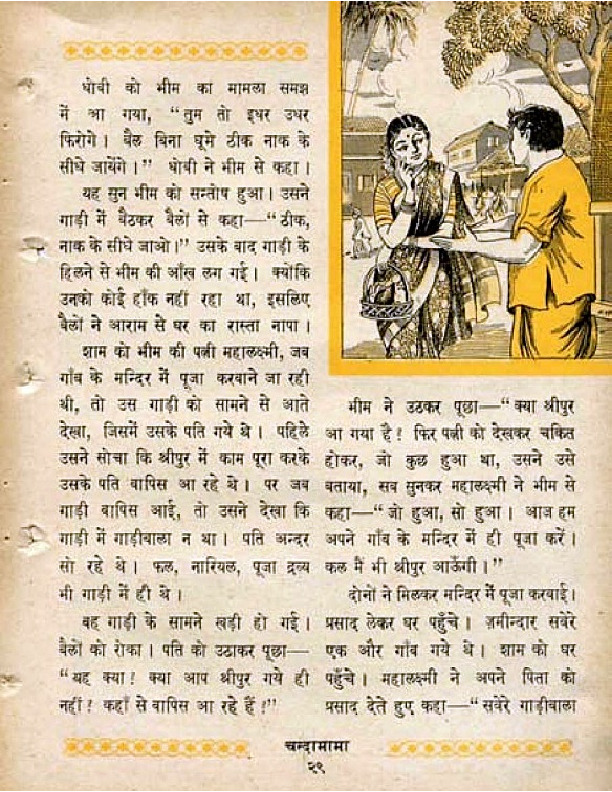 धोबी को भीम का मामला समझ
में आ गया, “तुम तो इधर उधर
फिरोगे। बैल बिना घूमे ठीक नाक के
सीधे जायेंगे।” धोबी ने भीम से कहा।
यह सुन भीम को सन्तोष हुआ। उसने
गाड़ी में बैठकर बैलों से कहा—“ठीक,
नाक के सीधे जाओ।” उसके बाद गाड़ी के
हिलने से भीम की आँख लग गई। क्योंकि
उनको कोई हाँक नहीं रहा था, इसलिए
बैलों ने आराम से घर का रास्ता नापा।
शाम को भीम की पत्नी महालक्ष्मी, जब
गाँव के मन्दिर में पूजा करवाने जा रही
थी, तो उस गाड़ी को सामने से आते
देखा, जिसमें उसके पति गये थे। पहिले
उसने सोचा कि श्रीपुर में काम पूरा करके
उसके पति वापिस आ रहे थे। पर जब
गाड़ी वापिस आई, तो उसने देखा कि
गाड़ी में गाड़ीवाला न था। पति अन्दर
सो रहे थे। फल, नारियल, पूजा द्रव्य
भी गाड़ी में ही थे।
वह गाड़ी के सामने खड़ी हो गई।
बैलों को रोका। पति को उठाकर पूछा—
“यह क्या? क्या आप श्रीपुर गये ही
नहीं? कहाँ से वापिस आ रहे हैं?”
भीम ने उठकर पूछा—“क्या श्रीपुर
आ गया है? फिर पत्नी को देखकर चकित
होकर, जो कुछ हुआ था, उसने उसे
बताया, सब सुनकर महालक्ष्मी ने भीम से
कहा—“जो हुआ, सो हुआ। आज हम
अपने गाँव के मन्दिर में ही पूजा करें।
कल मैं भी श्रीपुर आऊँगी।”
दोनों ने मिलकर मन्दिर में पूजा करवाई।
प्रसाद लेकर घर पहुँचे। ज़मीन्दार सवेरे
एक और गाँव गये थे। शाम को घर
पहुँचे। महालक्ष्मी ने अपने पिता को
प्रसाद देते हुए कहा—“सवेरे गाड़ीवाला
चन्दामामा
२९